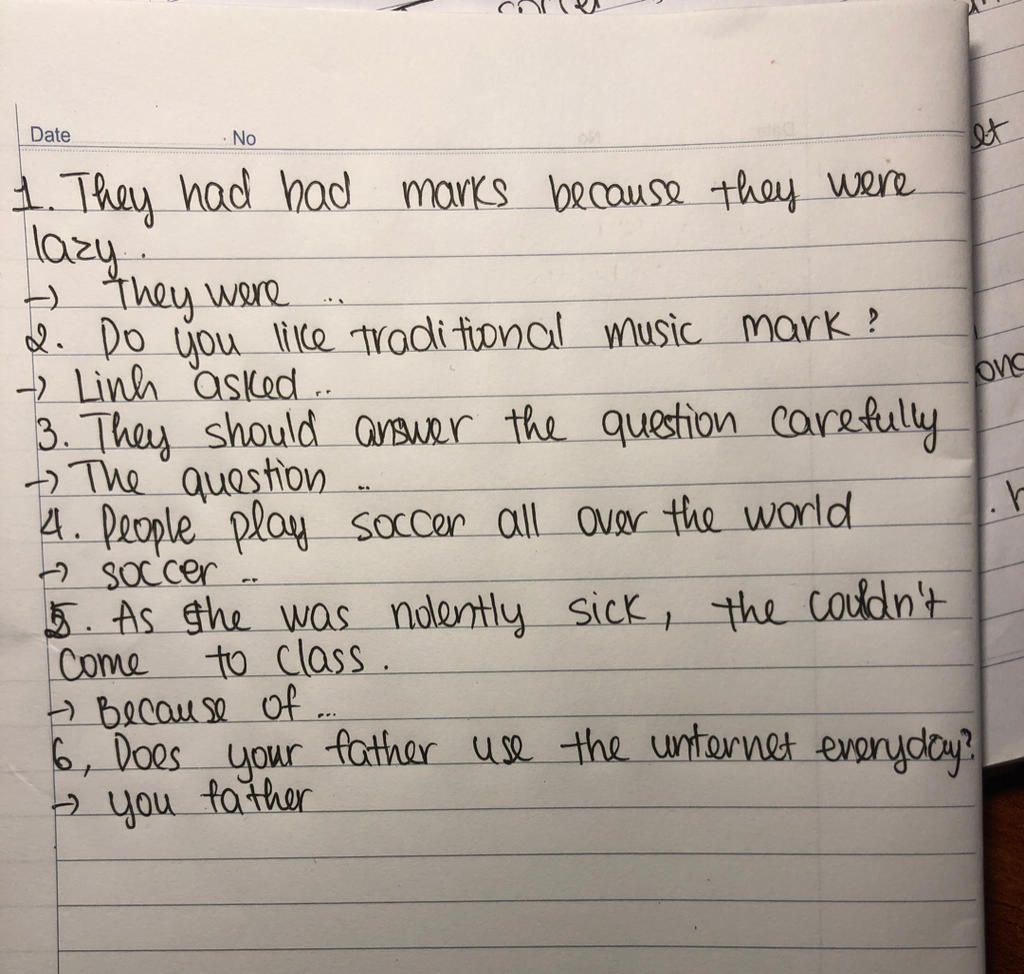 Date No
1. They had bad marks because they were
lazy.
→ They were ...
2. Do you like traditional music mark?
→ Linh asked..
3. They should answer the question carefully
→ The question ..
4. People play soccer all over the world
→ soccer ..
5. As she was nolently sick, the couldn't
come to class.
→ Because of ...
6, Does your father use the unternet everyday?
→ you father